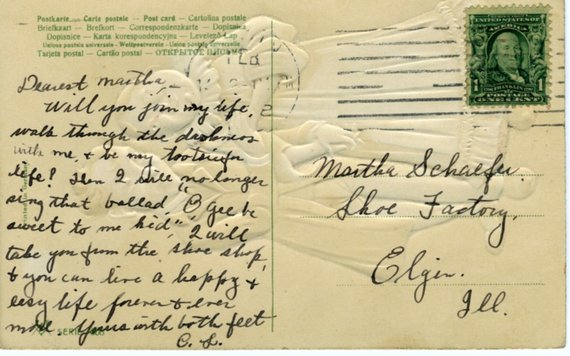 Postkarte — Carte postale — Post card — Cartolina postale
Briefkaart — Brefkort — Correspondenzkarte — Dopisnica
Dopisnice — Karta korespondencyjna — Levelező-Lap
Unione postale universelle — Weltpostverein — Union postale universelle
Tarjeta postal — Cartão postal — ОТКРЫТОЕ ПИСЬМО
FEB
2
UNITED STATES OF
AMERICA
FRANKLIN
1 POSTAGE 1
ONE CENT
Dearest Martha –
Will you join my life,
walk through the darkness
with me, & be my tootsie for
life? Then I will no longer
sing that ballad "O Gee be
sweet to me kid", I will
take you from the shoe shop,
& you can live a happy &
easy life forever & ever
more Yours with both feet
C. L.
Martha Schaefer.
Shoe Factory,
Elgin.
Ill.
SERIE